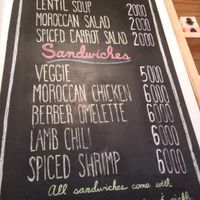 LENTIL SOUP 2000
MOROCCAN SALAD 2000
SPICED CARROT SALAD 2000
Sandwiches
VEGGIE 5000
MOROCCAN CHICKEN 6000
BERBER OMELETTE 6000
LAMB CHILI 6000
SPICED SHRIMP 6000
All sandwiches come with